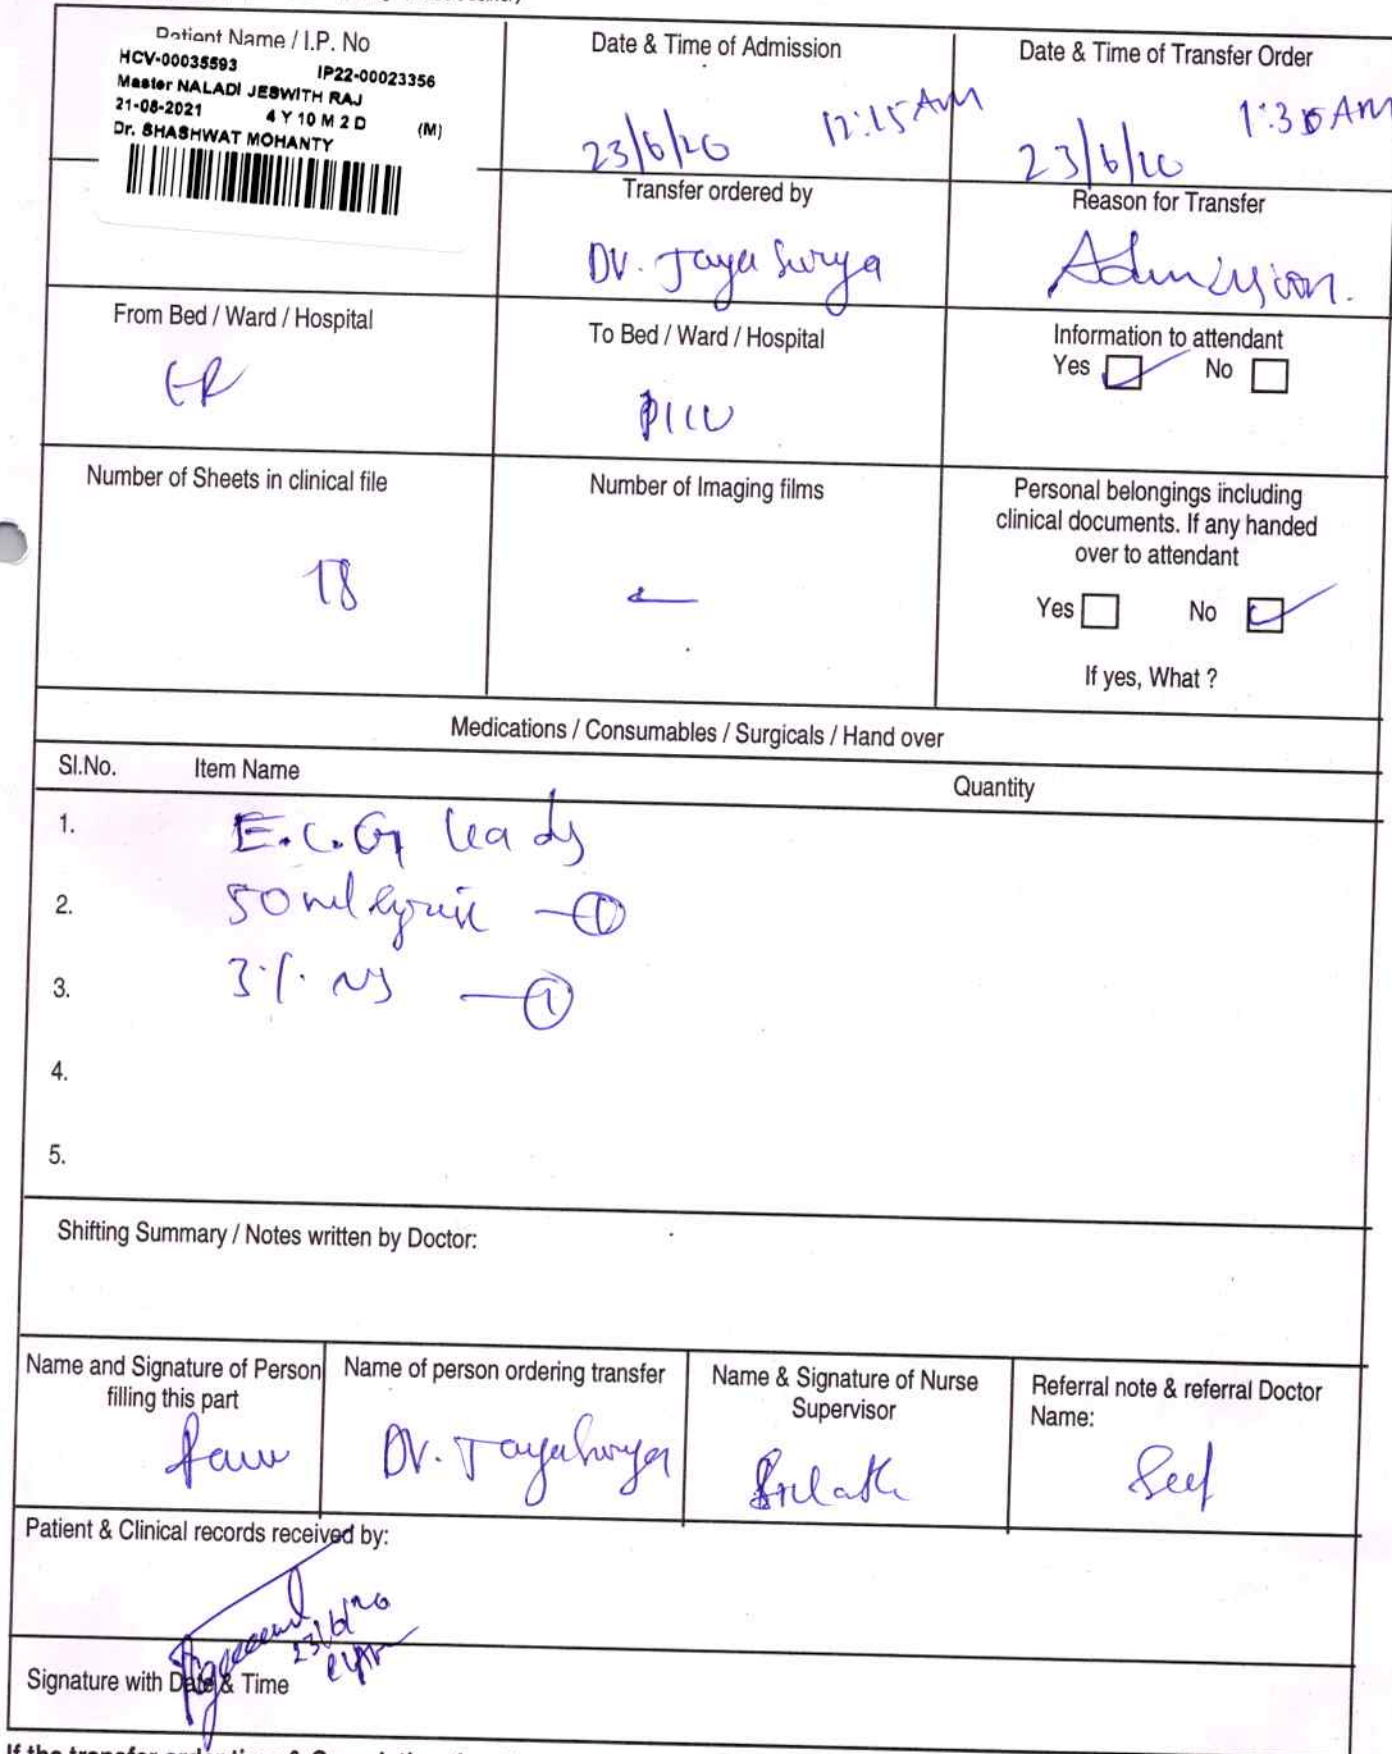 Patient Name / I.P. No
HCV-00035593 IP22-00023356
Master NALADI JESWITH RAJ
21-08-2021 4 Y 10 M 2 D (M)
Dr. SHASHWAT MOHANTY
Date & Time of Admission
23/6/26 12:15 AM
Date & Time of Transfer Order
23/6/26 1:30 AM
Transfer ordered by
Dr. Jaya Surya
Reason for Transfer
Admission.
From Bed / Ward / Hospital
ER
To Bed / Ward / Hospital
PICU
Information to attendant
Yes No
Number of Sheets in clinical file
18
Number of Imaging films
Personal belongings including
clinical documents. If any handed
over to attendant
Yes No
If yes, What ?
Medications / Consumables / Surgicals / Hand over
Sl.No. Item Name Quantity
1. E.C.G leads
2. 50 ml syringe - 1
3. 3% NS - 1
4.
5.
Shifting Summary / Notes written by Doctor:
Name and Signature of Person
filling this part
Name of person ordering transfer
Dr. Jayasurya
Name & Signature of Nurse
Supervisor
Referral note & referral Doctor
Name:
Self
Patient & Clinical records received by:
23/6/26
Signature with Date & Time